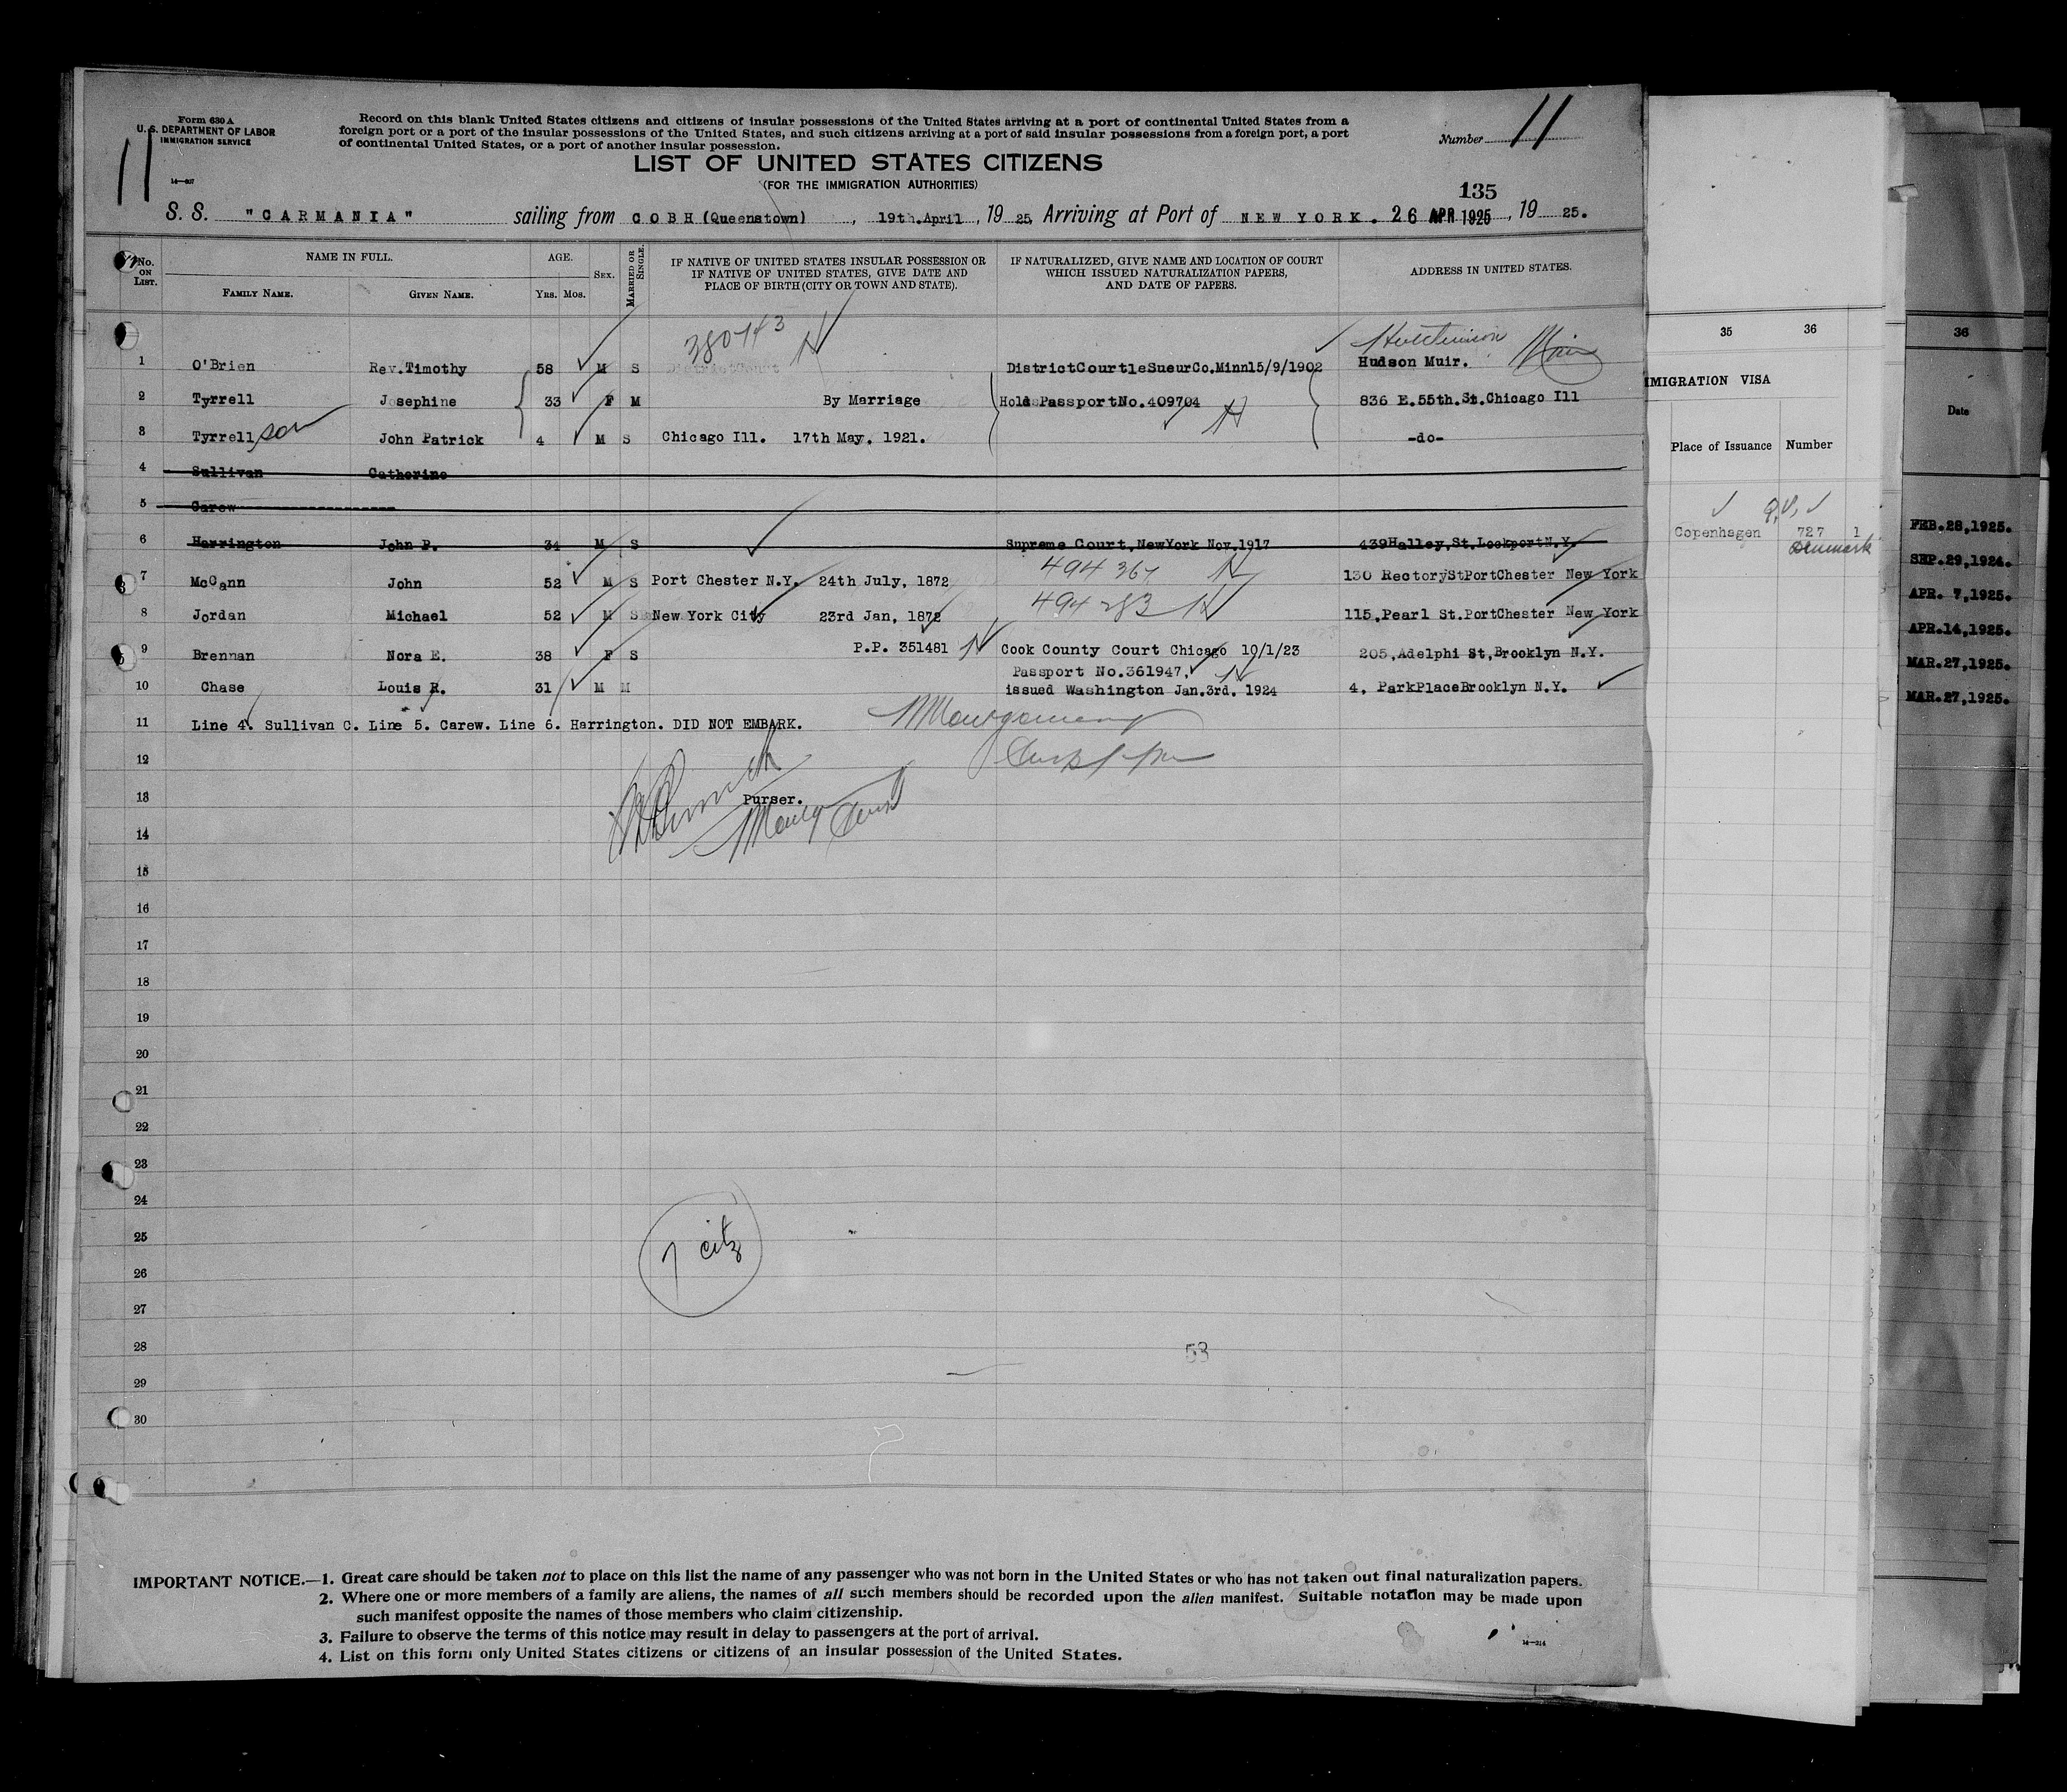 Form 630 A
U. S. DEPARTMENT OF LABOR
IMMIGRATION SERVICE
11
14—807
Record on this blank United States citizens and citizens of insular possessions of the United States arriving at a port of continental United States from a
foreign port or a port of the insular possessions of the United States, and such citizens arriving at a port of said insular possessions from a foreign port, a port
of continental United States, or a port of another insular possession.
Number 11
LIST OF UNITED STATES CITIZENS
(FOR THE IMMIGRATION AUTHORITIES)
135
S. S. "CARMANIA" sailing from COBH (Queenstown) , 19th.April , 19 25, Arriving at Port of NEW YORK. 26 APR 1925 , 19 25.
No. ON LIST. NAME IN FULL. AGE. SEX. MARRIED OR SINGLE. IF NATIVE OF UNITED STATES INSULAR POSSESSION OR IF NATIVE OF UNITED STATES, GIVE DATE AND PLACE OF BIRTH (CITY OR TOWN AND STATE). IF NATURALIZED, GIVE NAME AND LOCATION OF COURT WHICH ISSUED NATURALIZATION PAPERS, AND DATE OF PAPERS. ADDRESS IN UNITED STATES.
FAMILY NAME. GIVEN NAME. YRS. MOS.
380743 Hutchinson Minn
1 O'Brien Rev.Timothy 58 M S DistrictCourtleSueurCo.Minn15/9/1902 Hudson Muir.
2 Tyrrell Josephine 33 F M By Marriage Holds PassportNo.409704 836 E.55th.St.Chicago Ill
3 Tyrrell son John Patrick 4 M S Chicago Ill. 17th May. 1921. -do-
4 Sullivan Catherine
5 Carew
6 Harrington John P. 34 M S Supreme Court,NewYork Nov.1917 439Halley,St.LockportN.Y.
7 McCann John 52 M S Port Chester N.Y. 24th July, 1872 494 367 130 RectoryStPortChester New York
8 Jordan Michael 52 M S New York City 23rd Jan, 1872 494283 115,Pearl St.PortChester New York
9 Brennan Nora E. 38 F S P.P. 351481 Cook County Court Chicago 10/1/23 205,Adelphi St,Brooklyn N.Y.
Passport No.361947,
10 Chase Louis R. 31 M M issued Washington Jan.3rd. 1924 4, ParkPlaceBrooklyn N.Y.
11 Line 4. Sullivan C. Line 5. Carew. Line 6. Harrington. DID NOT EMBARK.
12
13 Purser.
14
15
16
17
18
19
20
21
22
23
24
25 7 citz
26
27
28 53
29
30
IMPORTANT NOTICE.—1. Great care should be taken not to place on this list the name of any passenger who was not born in the United States or who has not taken out final naturalization papers.
2. Where one or more members of a family are aliens, the names of all such members should be recorded upon the alien manifest. Suitable notation may be made upon
such manifest opposite the names of those members who claim citizenship.
3. Failure to observe the terms of this notice may result in delay to passengers at the port of arrival.
4. List on this form only United States citizens or citizens of an insular possession of the United States.
14—214
35 36
IMMIGRATION VISA
Place of Issuance Number
Copenhagen 727 1
Denmark
36
Date
FEB.28,1925.
SEP.29,1924.
APR. 7,1925.
APR.14,1925.
MAR.27,1925.
MAR.27,1925.